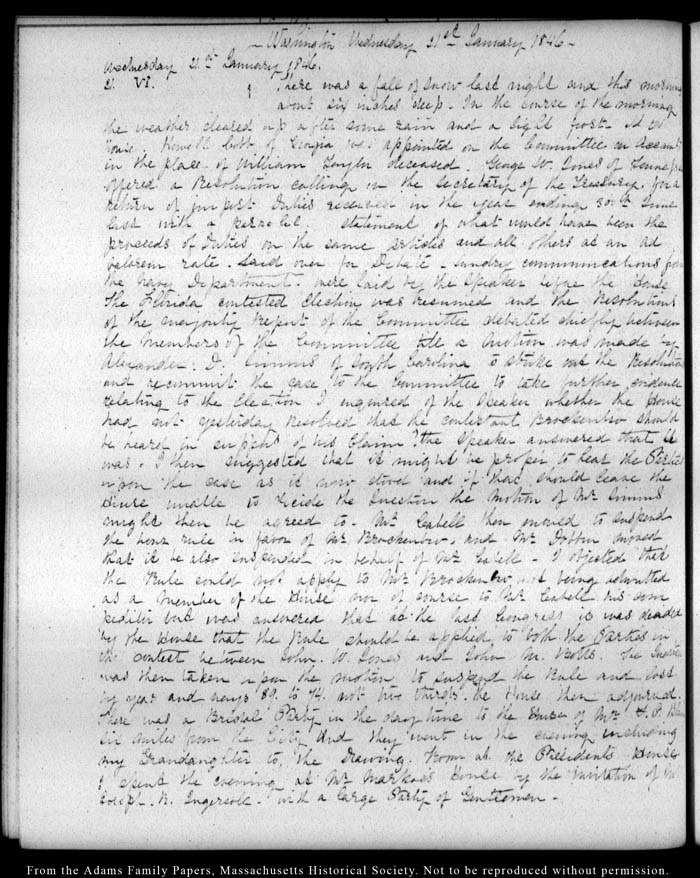 Washington Wednesday 21st January 1846-
Wednesday 21st January 1846.
21. VI. There was a fall of snow last night and this morning
about six inches deep. In the course of the morning
the weather cleared up after some rain and a light frost. At the
House, Howell Cobb of Georgia was appointed on the Committee on
in the place of William Taylor deceased. George W. Jones of Tennessee
offered a Resolution calling on the Secretary of the Treasury for a
return of impost Duties received in the year ending 30th June
last with a parallel statement of what would have been the
proceeds of Duties on the same articles and all others at an ad
valorem rate. Laid over for Debate - sundry communications from
the Navy Department were laid by the Speaker before the House
The Florida contested election was resumed and the Resolutions
of the majority Report of the Committee debated chiefly between
the Members of the Committee till a motion was made by
Alexander D. Simms of South Carolina to strike out the Resolution
and recommit the case to the Committee to take further evidence
relating to the Election I inquired of the Speaker whether the House
had not yesterday resolved that the contestant Brockenbro should
be heard in support of his claim? the Speaker answered that it
was. I then suggested that it might be proper to hear the Parties
upon the case as it now stood and if that should leave the
House unable to decide the question the motion of Mr Simms
might then be agreed to. Mr Cabell then moved to suspend
the hour rule in favor of Mr Brockenbro, and Mr Dobbin moved
that it be also suspended in behalf of Mr Cabell - I objected that
the Rule could not apply to Mr Brockenbro, not being admitted
as a Member of the House nor of course to Mr Cabell his com
petitor but was answered that at the last Congress it was decided
by the House that the Rule should be applied to both the Parties in
the contest between John W. Jones and John M. Botts. The Question
was then taken upon the motion to suspend the Rule and lost
by yeas and nays 89 to 74. not two thirds. the House then adjourned.
There was a Bridal Party in the day time to the House of Mr F. P. Blair
six miles from the City and they went in the evening including
my Grandaughter to the Drawing Room at the President's House
I spent the evening at Mr Markoe's House by the invitation of Mr
Joseph R. Ingersoll. with a large Party of Gentlemen -
From the Adams Family Papers, Massachusetts Historical Society. Not to be reproduced without permission.